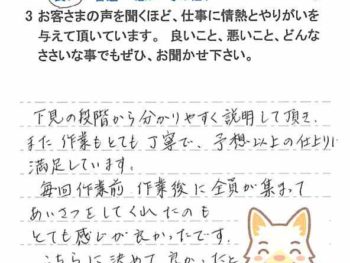 3 お客さまの声を聞くほど、仕事に情熱とやりがいを
与えて頂いています。 良いこと、悪いこと、どんな
ささいな事でもぜひ、お聞かせ下さい。
下見の段階から分かりやすく説明して頂き、
また 作業もとても丁寧で、予想以上の仕上りに
満足しています。
毎回作業前 作業後に全員が集まって
あいさつをしてくれたのも
とても感じが良かったです。
こちらに決めて良かったと